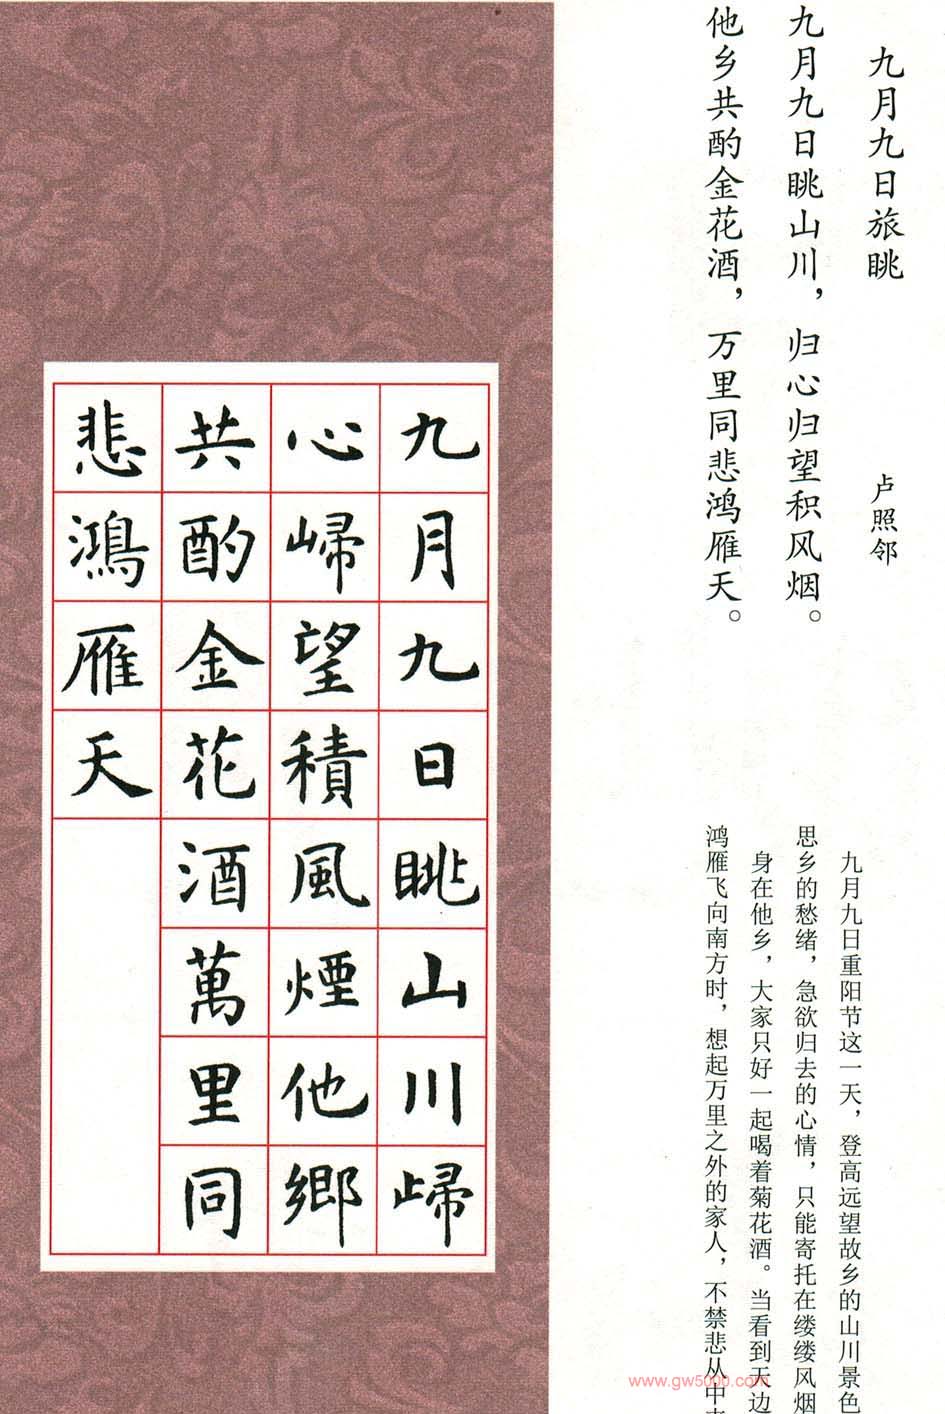 九月九日旅眺
卢照邻
九月九日眺山川，归心归望积风烟。
他乡共酌金花酒，万里同悲鸿雁天。
九月九日重阳节这一天，登高远望故乡的山川景色
思乡的愁绪，急欲归去的心情，只能寄托在缕缕风烟
身在他乡，大家只好一起喝着菊花酒。当看到天边
鸿雁飞向南方时，想起万里之外的家人，不禁悲从中
九月九日眺山川歸
心歸望積風煙他鄉
共酌金花酒萬里同
悲鴻雁天
www.gw5000.com